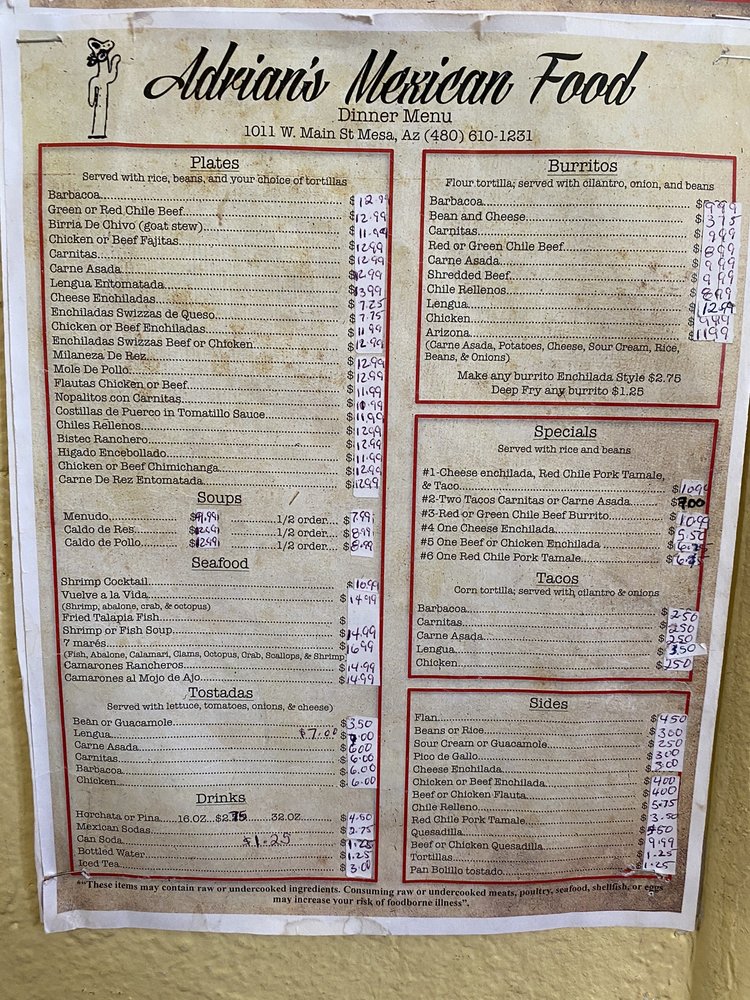 Adrian's Mexican Food
Dinner Menu
1011 W. Main St Mesa, Az (480) 610-1231
Plates
Served with rice, beans, and your choice of tortillas
Barbacoa $12.99
Green or Red Chile Beef $12.99
Birria De Chivo (goat stew) $11.99
Chicken or Beef Fajitas $12.99
Carnitas $12.99
Carne Asada $12.99
Lengua Entomatada $13.99
Cheese Enchiladas $7.25
Enchiladas Swizzas de Queso $7.75
Chicken or Beef Enchiladas $11.99
Enchiladas Swizzas Beef or Chicken $12.99
Milaneza De Rez $12.99
Mole De Pollo $12.99
Flautas Chicken or Beef $11.99
Nopalitos con Carnitas $10.99
Costillas de Puerco in Tomatillo Sauce $11.99
Chiles Rellenos $12.99
Bistec Ranchero $12.99
Higado Encebollado $11.99
Chicken or Beef Chimichanga $12.99
Carne De Rez Entomatada $12.99
Soups
Menudo $11.99 1/2 order $7.99
Caldo de Res $12.99 1/2 order $8.99
Caldo de Pollo $12.99 1/2 order $8.99
Seafood
Shrimp Cocktail $10.99
Vuelve a la Vida $14.99
(Shrimp, abalone, crab, & octopus)
Fried Talapia Fish $
Shrimp or Fish Soup $14.99
7 marés $16.99
(Fish, Abalone, Calamari, Clams, Octopus, Crab, Scallops, & Shrimp)
Camarones Rancheros $14.99
Camarones al Mojo de Ajo $14.99
Tostadas
Served with lettuce, tomatoes, onions, & cheese)
Bean or Guacamole $3.50
Lengua $7.00 $7.00
Carne Asada $6.00
Carnitas $6.00
Barbacoa $6.00
Chicken $6.00
Drinks
Horchata or Pina 16.OZ $2.75 32.OZ $4.50
Mexican Sodas $2.75
Can Soda $1.25 $1.25
Bottled Water $1.25
Iced Tea $3.00
Burritos
Flour tortilla; served with cilantro, onion, and beans
Barbacoa $9.99
Bean and Cheese $3.75
Carnitas $9.99
Red or Green Chile Beef $8.99
Carne Asada $9.99
Shredded Beef $9.99
Chile Rellenos $8.99
Lengua $12.99
Chicken $9.99
Arizona $11.99
(Carne Asada, Potatoes, Cheese, Sour Cream, Rice,
Beans, & Onions)
Make any burrito Enchilada Style $2.75
Deep Fry any burrito $1.25
Specials
Served with rice and beans
#1-Cheese enchilada, Red Chile Pork Tamale,
& Taco $10.99
#2-Two Tacos Carnitas or Carne Asada $9.00
#3-Red or Green Chile Beef Burrito $10.99
#4 One Cheese Enchilada $5.50
#5 One Beef or Chicken Enchilada $6.75
#6 One Red Chile Pork Tamale $6.75
Tacos
Corn tortilla; served with cilantro & onions
Barbacoa $2.50
Carnitas $2.50
Carne Asada $2.50
Lengua $3.50
Chicken $2.50
Sides
Flan $4.50
Beans or Rice $3.00
Sour Cream or Guacamole $2.50
Pico de Gallo $3.00
Cheese Enchilada $3.00
Chicken or Beef Enchilada $4.00
Beef or Chicken Flauta $4.00
Chile Relleno $5.75
Red Chile Pork Tamale $3.50
Quesadilla $4.50
Beef or Chicken Quesadilla $9.99
Tortillas $1.25
Pan Bolillo tostado $1.25
*"These items may contain raw or undercooked ingredients. Consuming raw or undercooked meats, poultry, seafood, shellfish, or eggs
may increase your risk of foodborne illness".